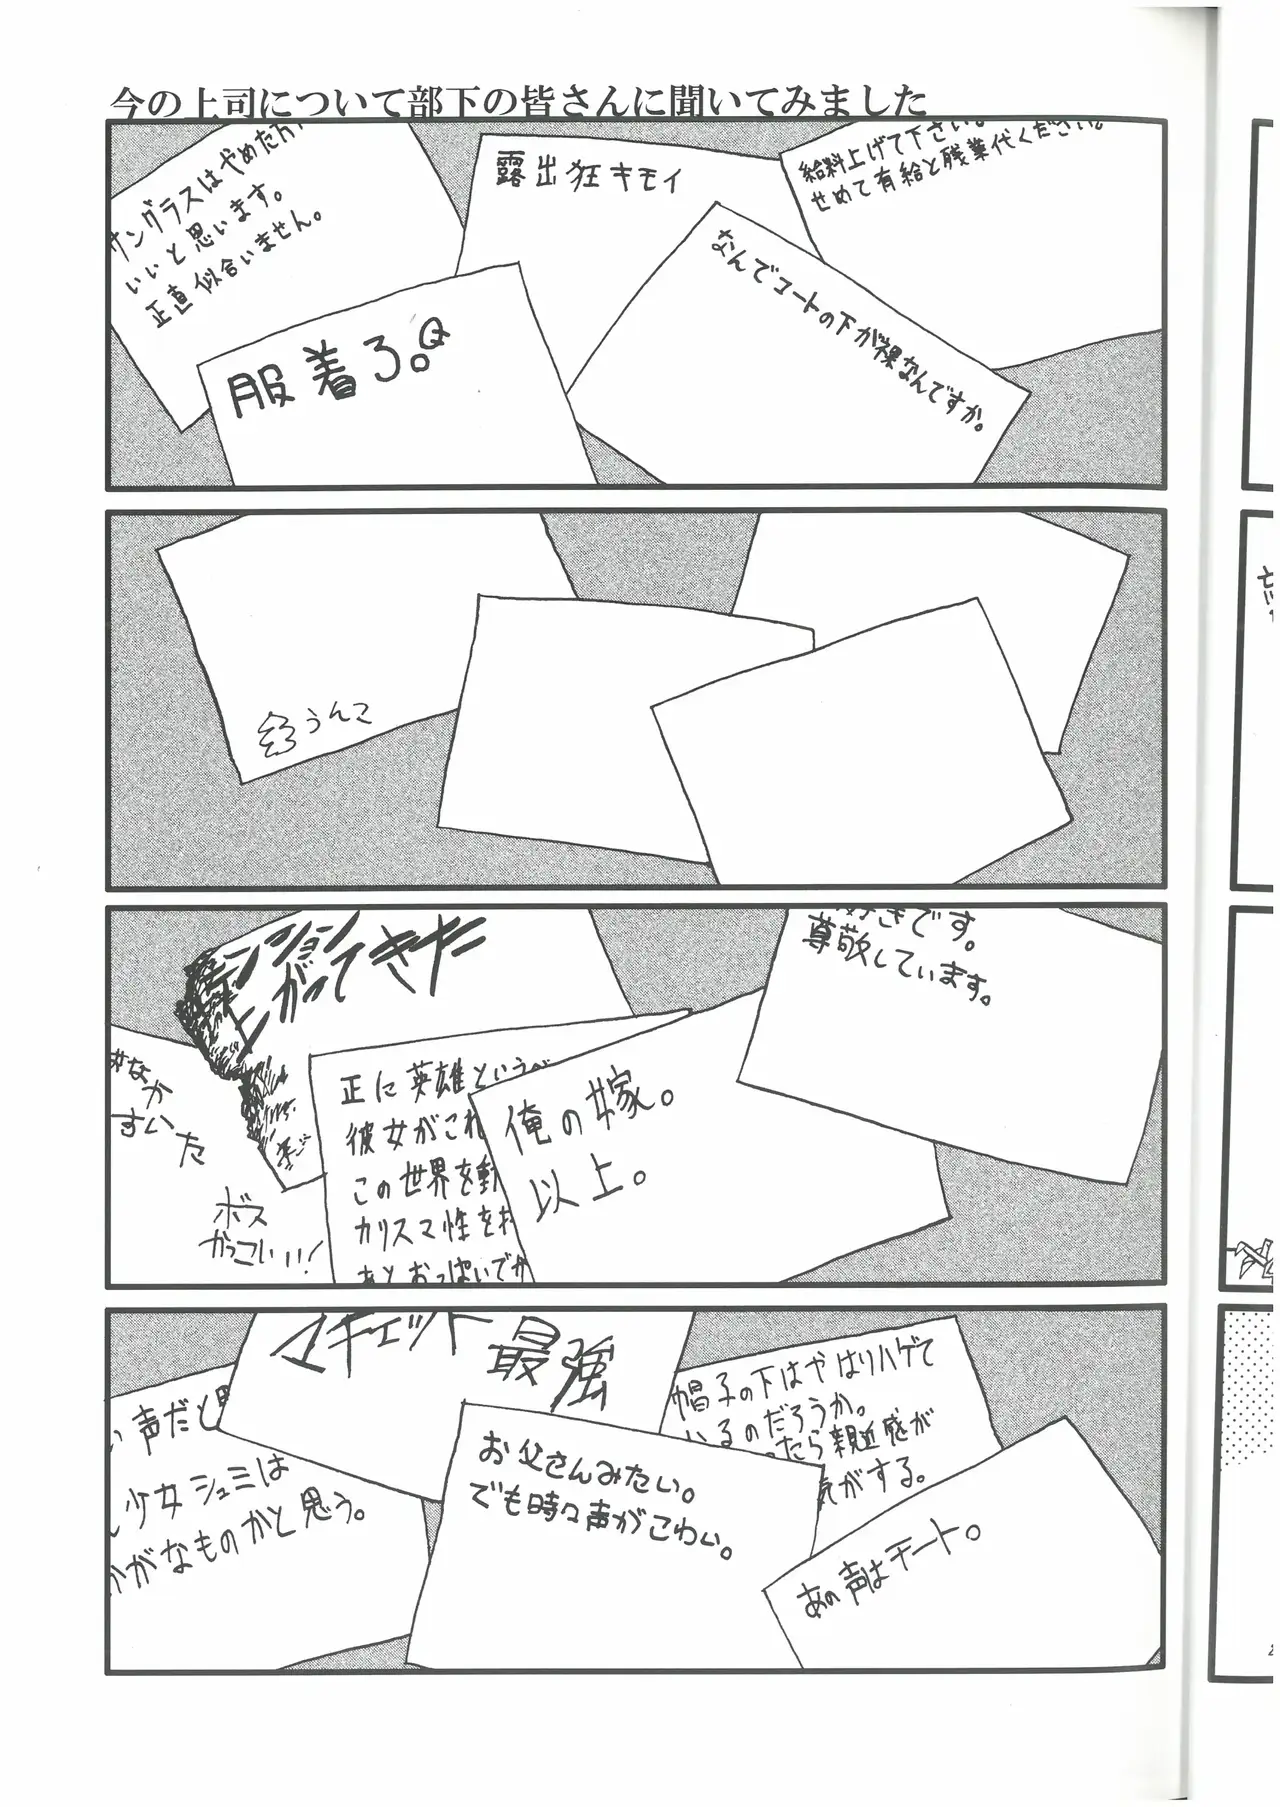 今の上司について部下の皆さんに聞いてみました
給料上げて下さい。
せめて有給と残業代ください。
露出狂キモイ
なんでコートの下が裸なんですか。
サングラスはやめた方が
いいと思います。
正直似合いません。
服着ろ。Q
うんこ
好きです。
尊敬しています。
俺の嫁。
以上。
正に英雄という
彼女がこれ
この世界を動
カリスマ性を持
あとおっぱいでか
テンション
上がってきた
おなか
すいた
ボス
かっこいい!
帽子の下はやはりハゲて
いるのだろうか。
ったら親近感が
気がする。
マチェット
最強
あの声はチート。
お父さんみたい。
でも時々声がこわい。
い声だと思
少女シュミは
いかがなものかと思う。